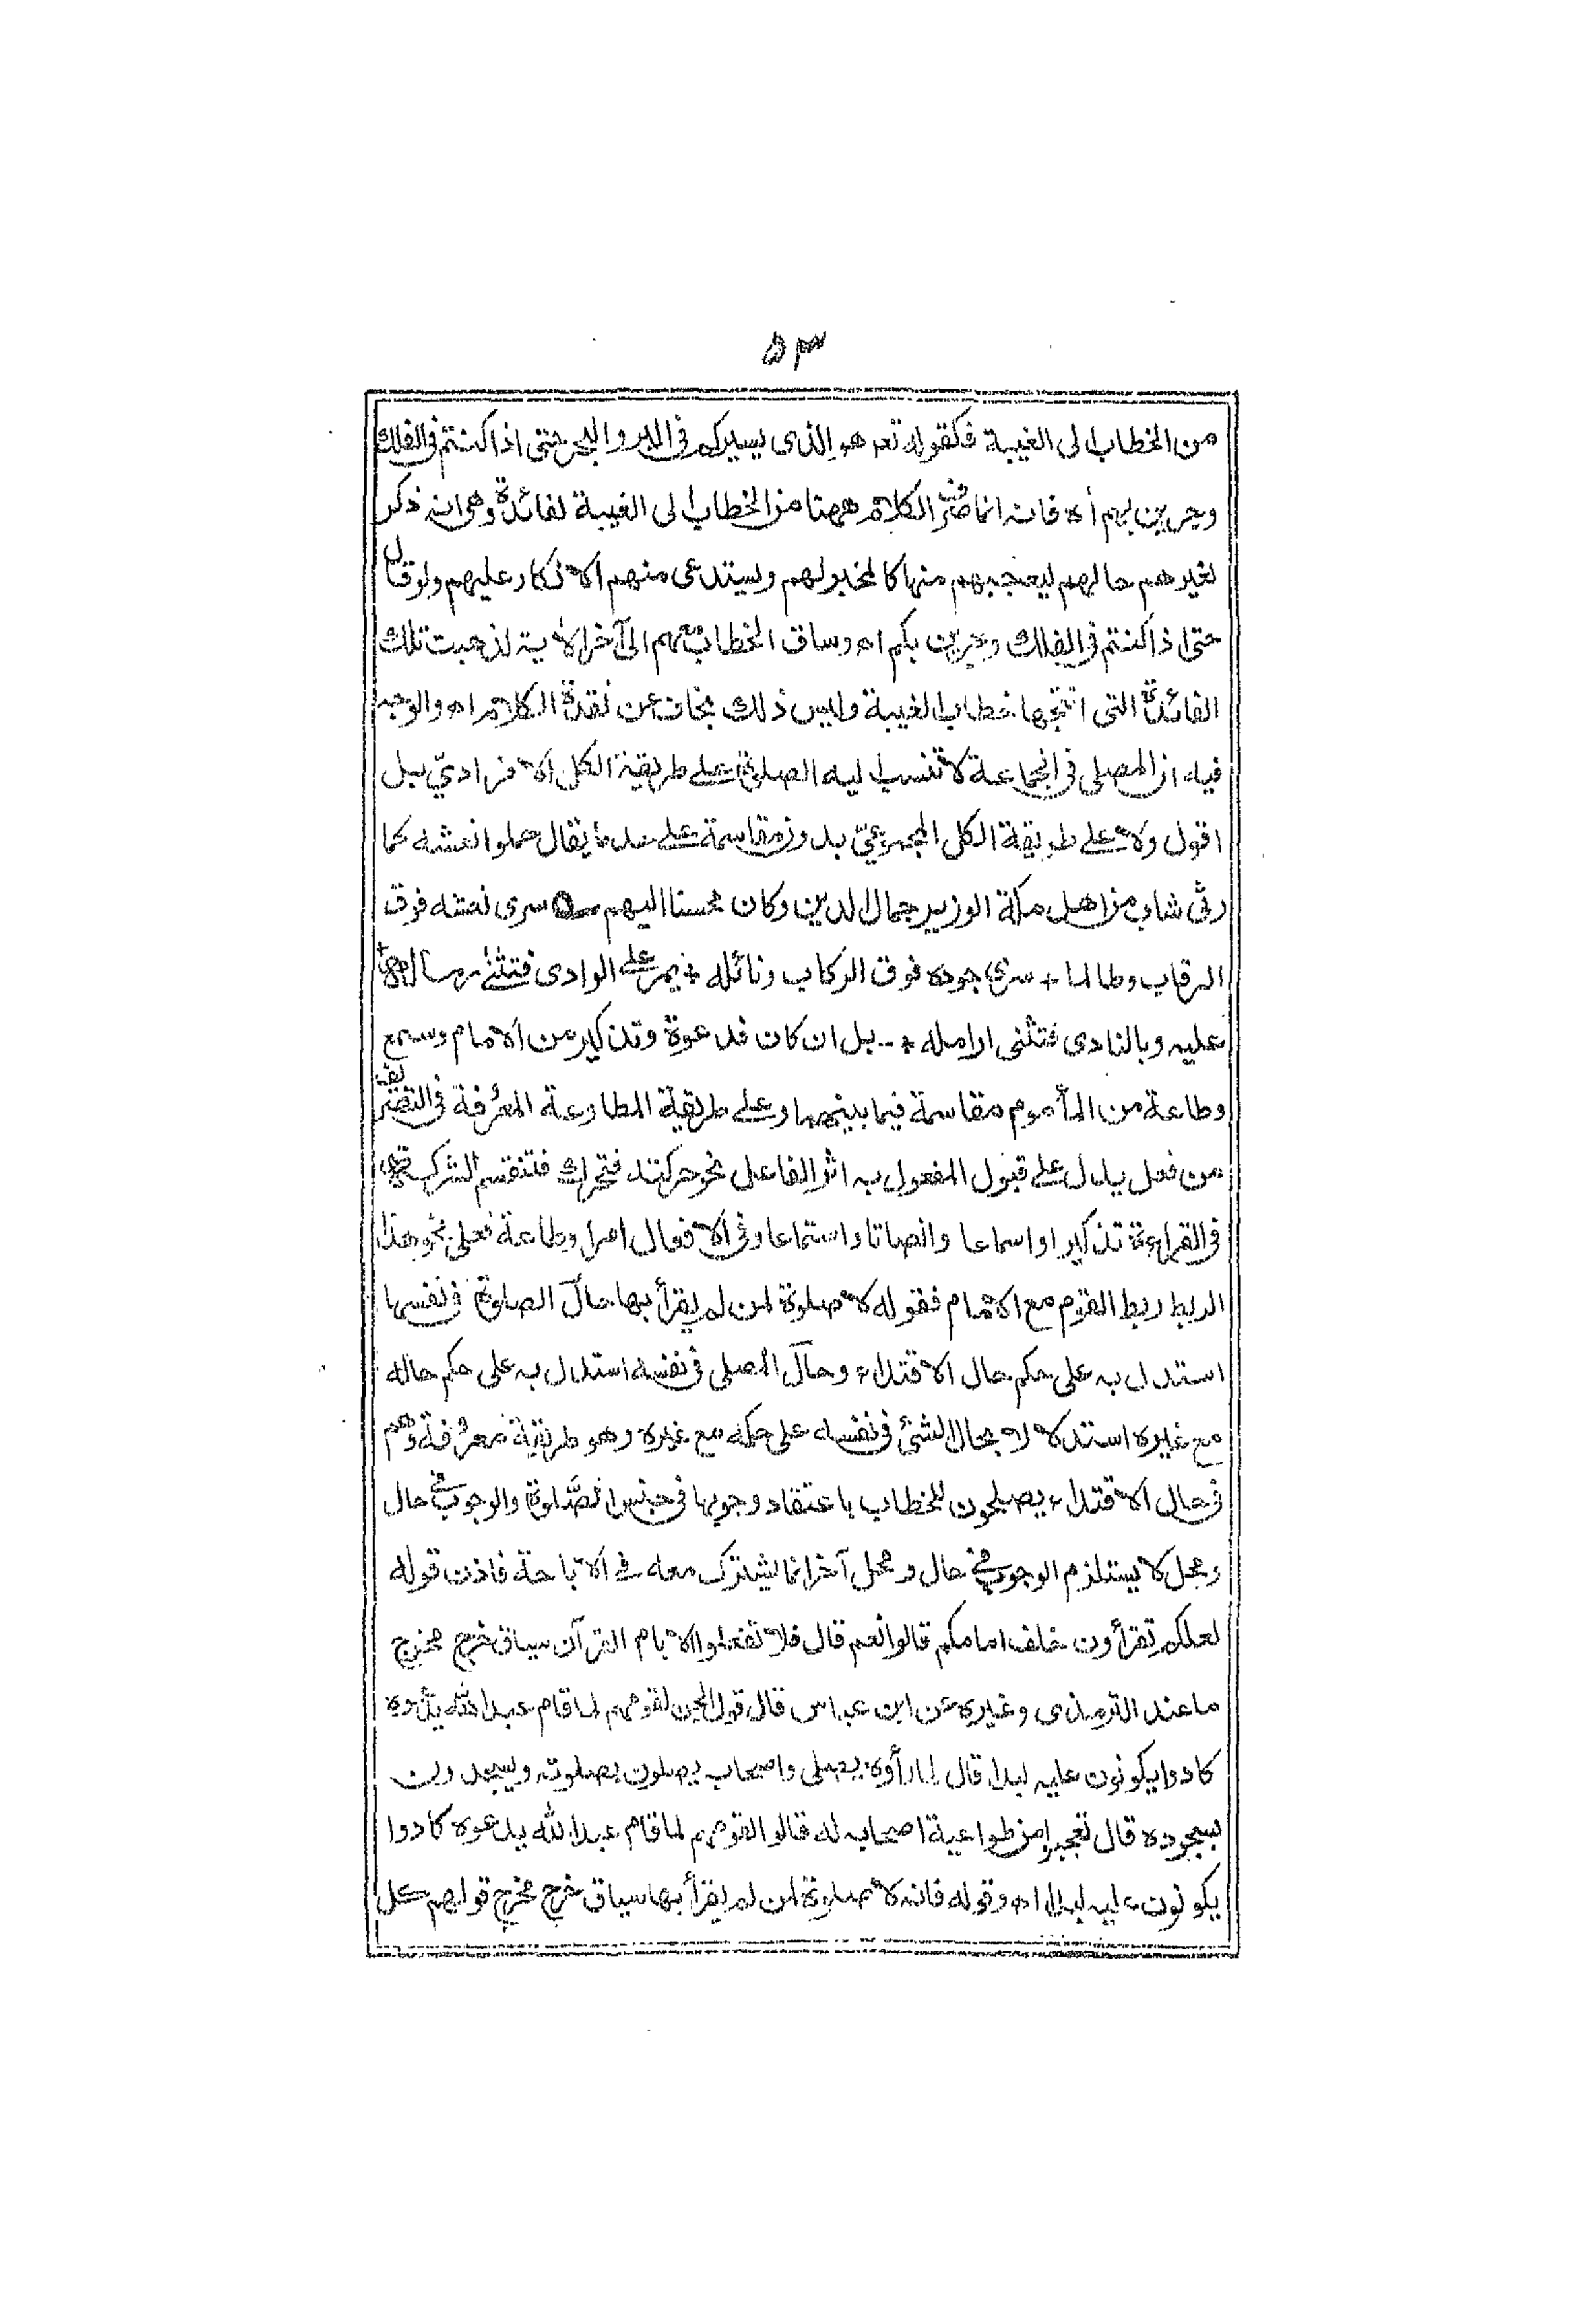 ۵۳
من الخطاب الى الغيبة فكقوله تعه هو الذى يسيركم فى البر والبحر حتى اذا كنتم فى الفلك
وجرين بهم أه فانه انما صُرِف الكلام ههنا من الخطاب الى الغيبة لفائدة وهى انه ذكر
لغيرهم حالهم ليعجبهم منها كالمخبر لهم ويستدعى منهم الانكار عليهم ولو قال
حتى اذا كنتم فى الفلك وجرين بكم اه وساق الخطاب معهم الى آخر الآية لذهبت تلك
الفائدة التى انتجها خطاب الغيبة وليس ذلك بخاف عن نقدة الكلام اه والوجه
فيه ان المصلى فى الجماعة لا تنسب اليه الصلوة على طريقة الكل الافرادىّ بل
اقول ولا على طريقة الكل المجموعىّ بدون مقاسمة على حد ما يقال حملوا نعشه كما
رثى شاب من اهل مكة الوزير جمال الدين وكان محسنا اليهم سرى نعشه فوق
الرقاب وطالما + سرى جوده فوق الركاب ونائله + يمر على الوادى فتثنى رماله +
عليه وبالنادى فتثنى ارامله + بل ان كان فدعوة وتذكير من الامام وسمع
وطاعة من المأموم مقاسمة فيما بينهما وعلى طريقة المطاوعة المعروفة فى التصريف
من فعل يدل على قبول المفعول به اثر الفاعل نحو حركته فتحرك فتنقسم الشركة
فى القراءة تذكيرا واسماعا وانصاتا واستماعا وفى الافعال امرا وطاعة فعلى نحو هذا
الربط ربط القوم مع الامام فقوله لا صلوة لمن لم يقرأ بها حال الصلوة فى نفسها
استدل به على حكم حال الاقتداء وحال المصلى فى نفسه استدل به على حكم حاله
مع غيره استدلالا بحال الشئ فى نفسه على حكمه مع غيره وهو طريقة معروفة وهم
فى حال الاقتداء يصلحون للخطاب باعتقاد وجوبها فى جنس الصلوة والوجوب فى حال
ومحل لا يستلزم الوجوب فى حال ومحل آخر انما يشترك معه فى الاباحة فاذن قوله
لعلكم تقرأون خلف امامكم قالوا نعم قال فلا تفعلوا الا بام القرآن سياق خرج مخرج
ما عند الترمذى وغيره عن ابن عباس قال قول الجن لقومهم لما قام عبد الله يدعوه
كادوا يكونون عليه لبدا قال لما رأوه يصلى واصحابه يصلون بصلوته ويسجدون
بسجوده قال تعجبوا من طواعية اصحابه له قالوا لقومهم لما قام عبد الله يدعوه كادوا
يكونون عليه لبدا اه وقوله فانه لا صلوة لمن لم يقرأ بها سياق خرج مخرج قولهم كل